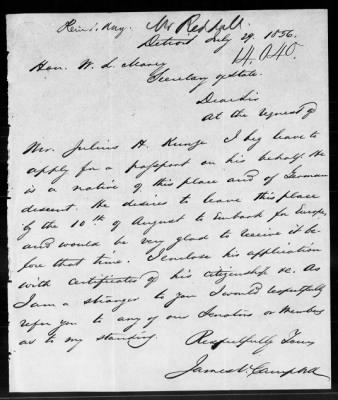 Mr Reddall.
Detroit July 29. 1856.
14.040.
Hon. W. L. Marcy
Secretary of State.
Dear Sir
At the request of
Mr. Julius H. Kunze I beg leave to
apply for a passport on his behalf. He
is a native of this place and of German
descent. He desires to leave this place
by the 10th of August to embark for Europe,
and would be very glad to receive it be-
fore that time. I enclose his application
with certificates of his citizenship &c. As
I am a stranger to you I would respectfully
refer you to any of our Senators or Members
as to my standing.
Respectfully Yours
James V. Campbell